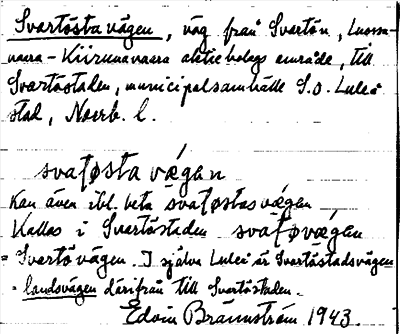 Svartöstavägen, väg från Svartön, Luossa-
vaara-Kiirunavaara aktiebolags område, till
Svartöstaden, municipalsamhälle S.O. Luleå
stad, Norrb. l.
svaʈøsta vǽgen
Kan även ibl. heta svaʈøstasvægen
Kallas i Svartöstaden svaʈøvægen
= Svartövägen. I själva Luleå är Svartöstadsvägen
= landsvägen därifrån till Svartöstaden.
Edvin Brännström 1943.